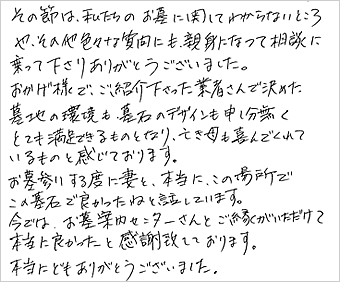 その節は、私たちのお墓に関してわからないところ
や、その他色々な質問にも、親身になって相談に
乗って下さりありがとうございました。
おかげ様で、ご紹介下さった業者さんで決めた
墓地の環境も墓石のデザインも申し分無く
とても満足できるものとなり、亡き母も喜んでくれて
いるものと感じております。
お墓参りする度に妻と、本当に、この場所で
この墓石で良かったねと話しています。
今では、お墓案内センターさんとご縁がいただけて
本当に良かったと感謝致しております。
本当にどもありがとうございました。